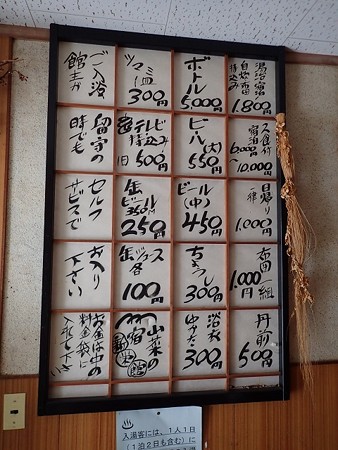 湯治宿泊
自炊 布団
持込み
1,800円
2食付
宿泊
6,000〜
10,000円
日帰り
一律
1,000円
布団一組
1,000円
丹前
500円
ボトル
5,000円
ビール(大)
550円
ビール
(中)
450円
ちょうし
300円
浴衣
ゆかた
300円
ツマミ皿
300円
テレビ
持込み
1日
500円
缶
ビール
350ml
250円
缶ジュース
各
100円
山菜の
宿
ご入浴
館主が
留守の
時でも
セルフ
サービスで
お入り
下さい
お金は中の
料金袋に
入れて下さい
♨
入湯客には、1人1日
(1泊2日も含む)に